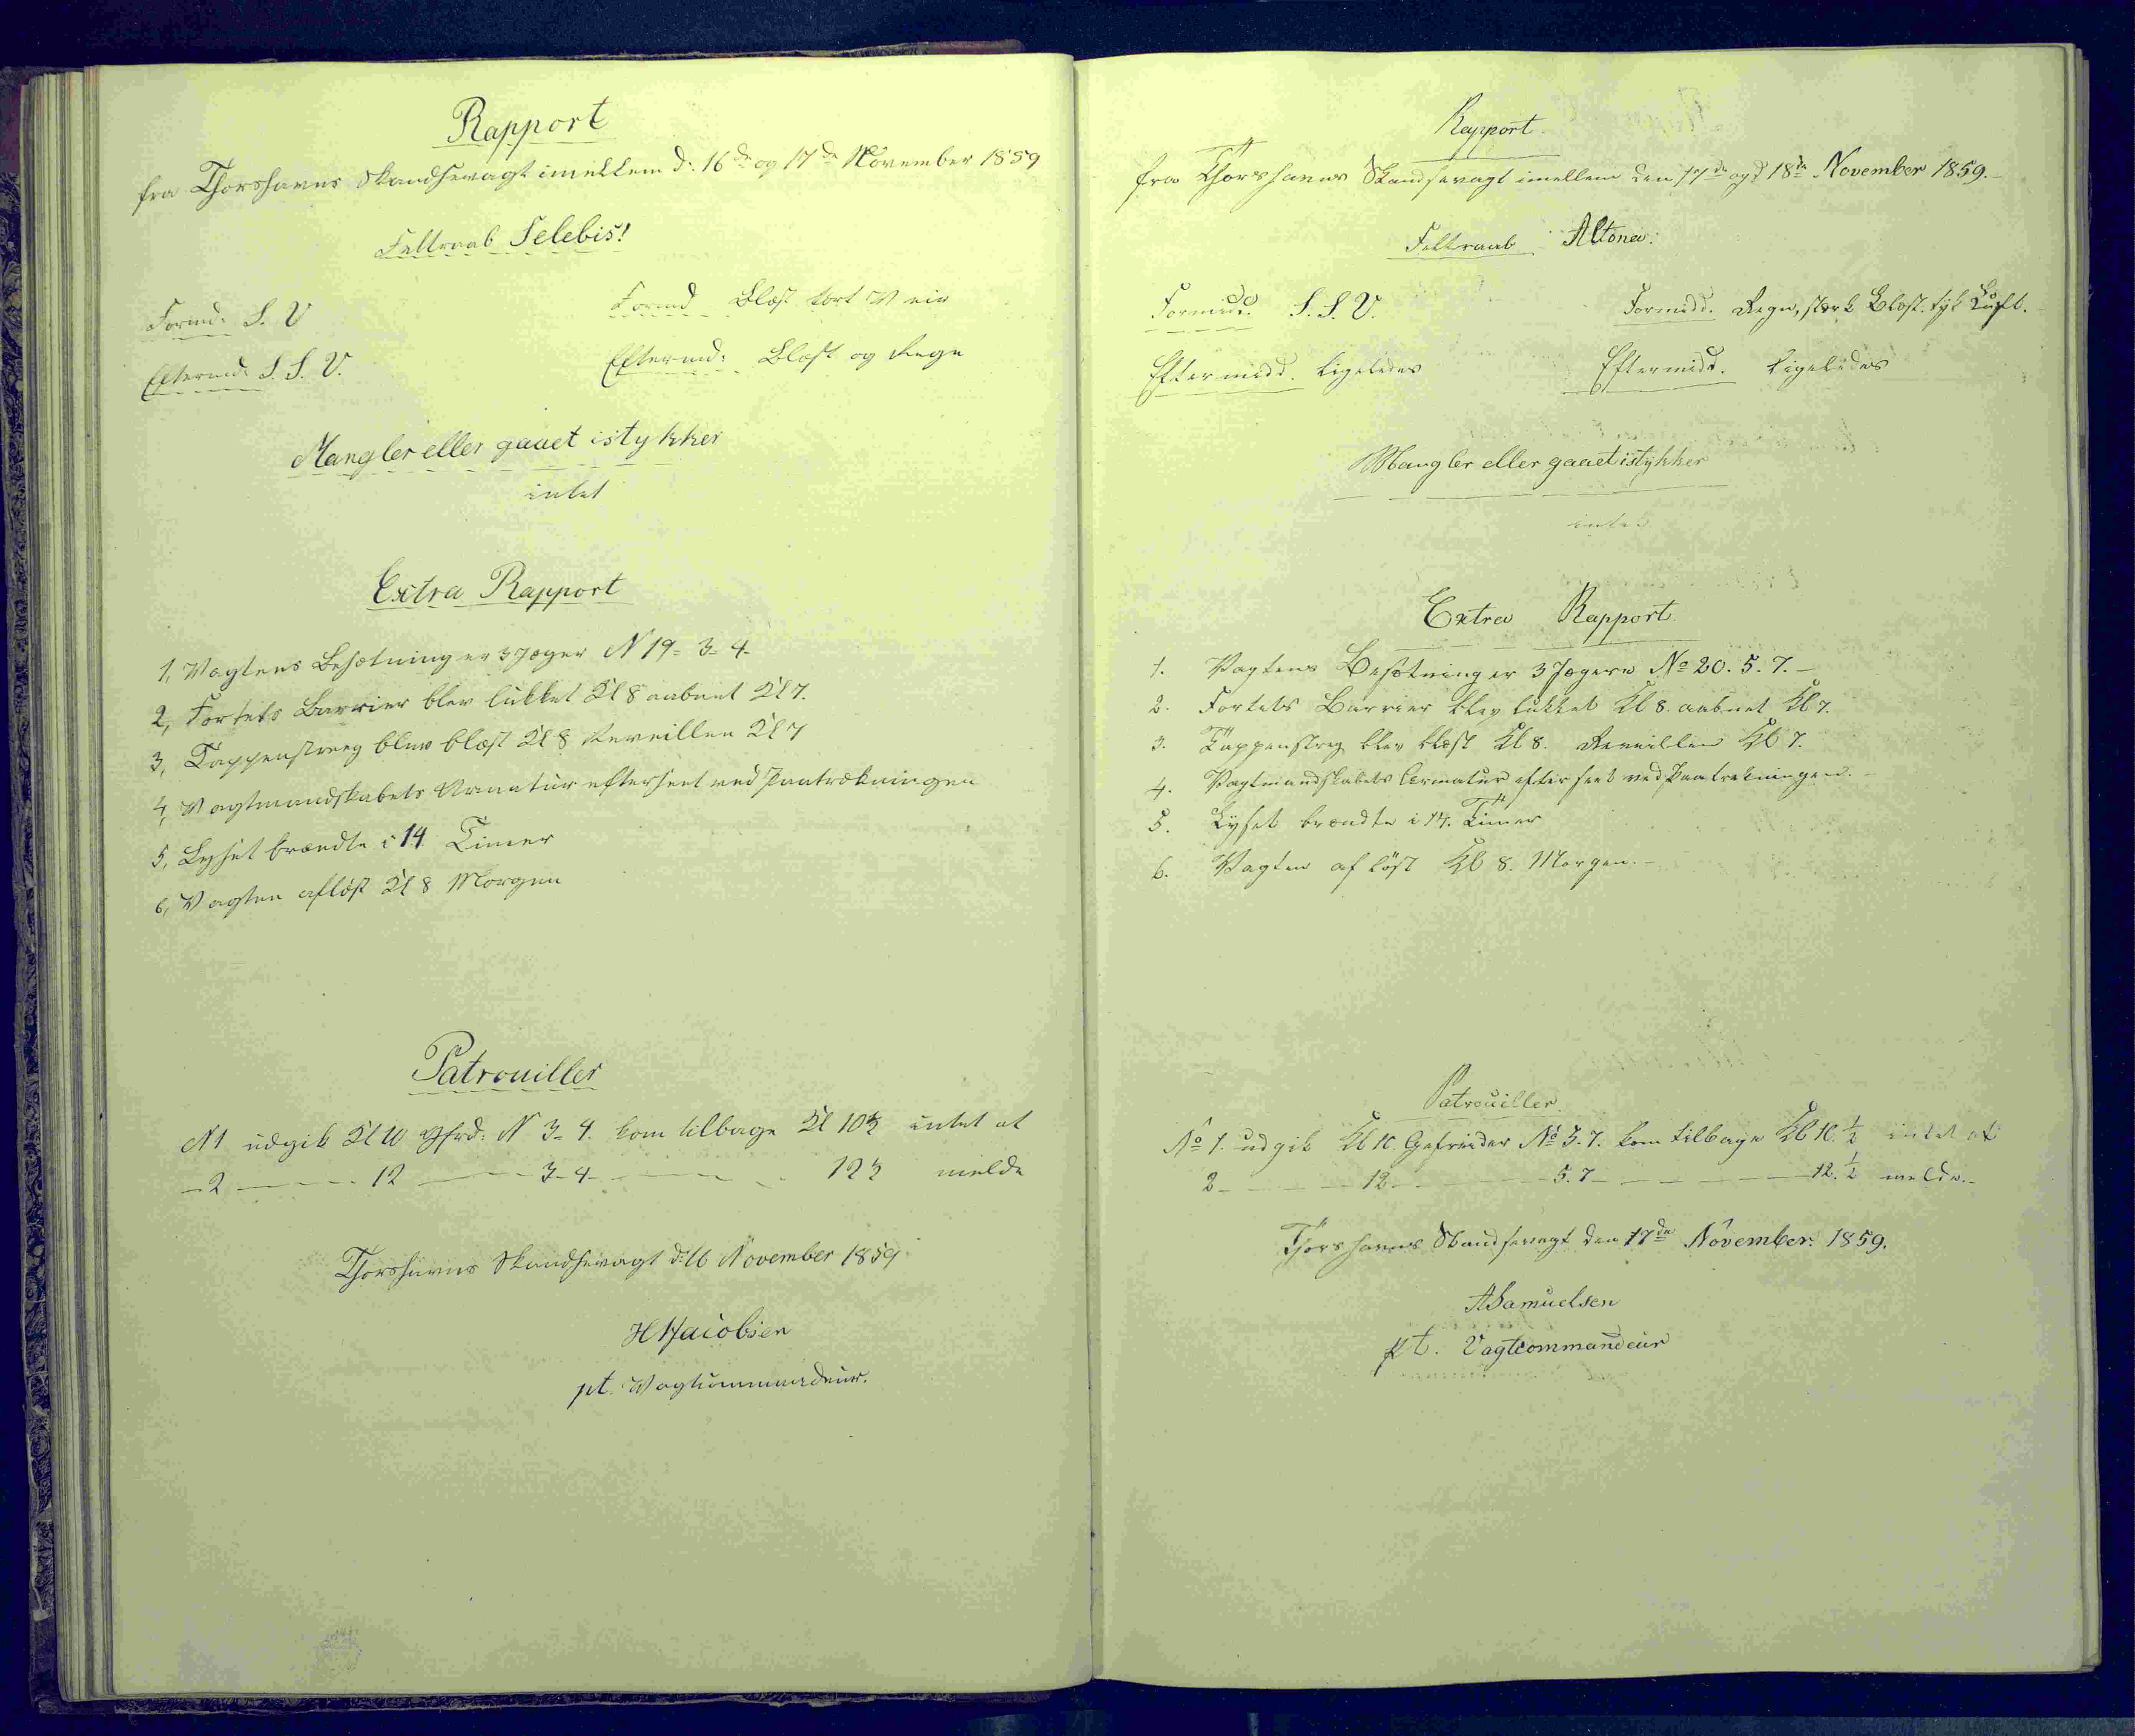 Rapport
fra Thorshavns Skandsevagt imellem d: 16de og 17de November 1859
Feltraab Selebis!
Formd: S. V
Formd Blæst tort Veir
Eftermd: S. S. V.
Eftermd: Blæst og Regn
Mangler eller gaaet istykker
intet
Extra Rapport
1, Vagtens Besætning er 3 Jæger N 19- 3- 4-
2, Fortets Barrier blev lukket Kl 8 aabnet Kl 7.
3, Tappenstreg blev blæst Kl 8 Reveillen Kl 7
4, Vagtmandskabets Armatur efterseet ved Paatrækningen
5, Lyset brændte i 14 Timer
6, Vagten aflöst Kl 8 Morgen
Patrouiller
N 1 udgik Kl 10 Gfrd: N 3- 4. kom tilbage Kl 10½ intet at
- 2 - 12 - 3-4 - 12½ melde
Thorshavns Skandsevagt d: 16 November 1859
HJacobsen
pt. Vagtcommandeur.
Rapport
fra Thorshavns Skandsevagt imellem den 17de og d 18de November 1859.-
Feltraab Altona.
Formidd. S. S. V.
Formidd. Regn, stærk Blæst. tyk Luft.
Eftermidd. ligeledes
Eftermidd. ligeledes
Mangler eller gaaet istykker
intet
Extra Rapport.
1. Vagtens Besætning er 3 Jægere No 20. 5. 7.-
2. Fortets Barrier blev lukket Kl 8. aabnet Kl 7.
3. Tappenstreg blev blæst Kl 8. Reveillen Kl 7.
4. Vagtmandskabets Armatur efterseet ved Paatrækningen.-
5. Lyset brændte i 14. Timer
6. Vagten aflöst Kl 8. Morgen.-
Patrouiller.
No 1. udgik Kl 10. Gefreider No 5. 7. kom tilbage Kl 10. ½ intet at
2 - 12 - 5. 7 - 12. ½ melde.-
Thorshavns Skandsevagt den 17de November. 1859.
ASamuelsen
pt. Vagtcommandeur